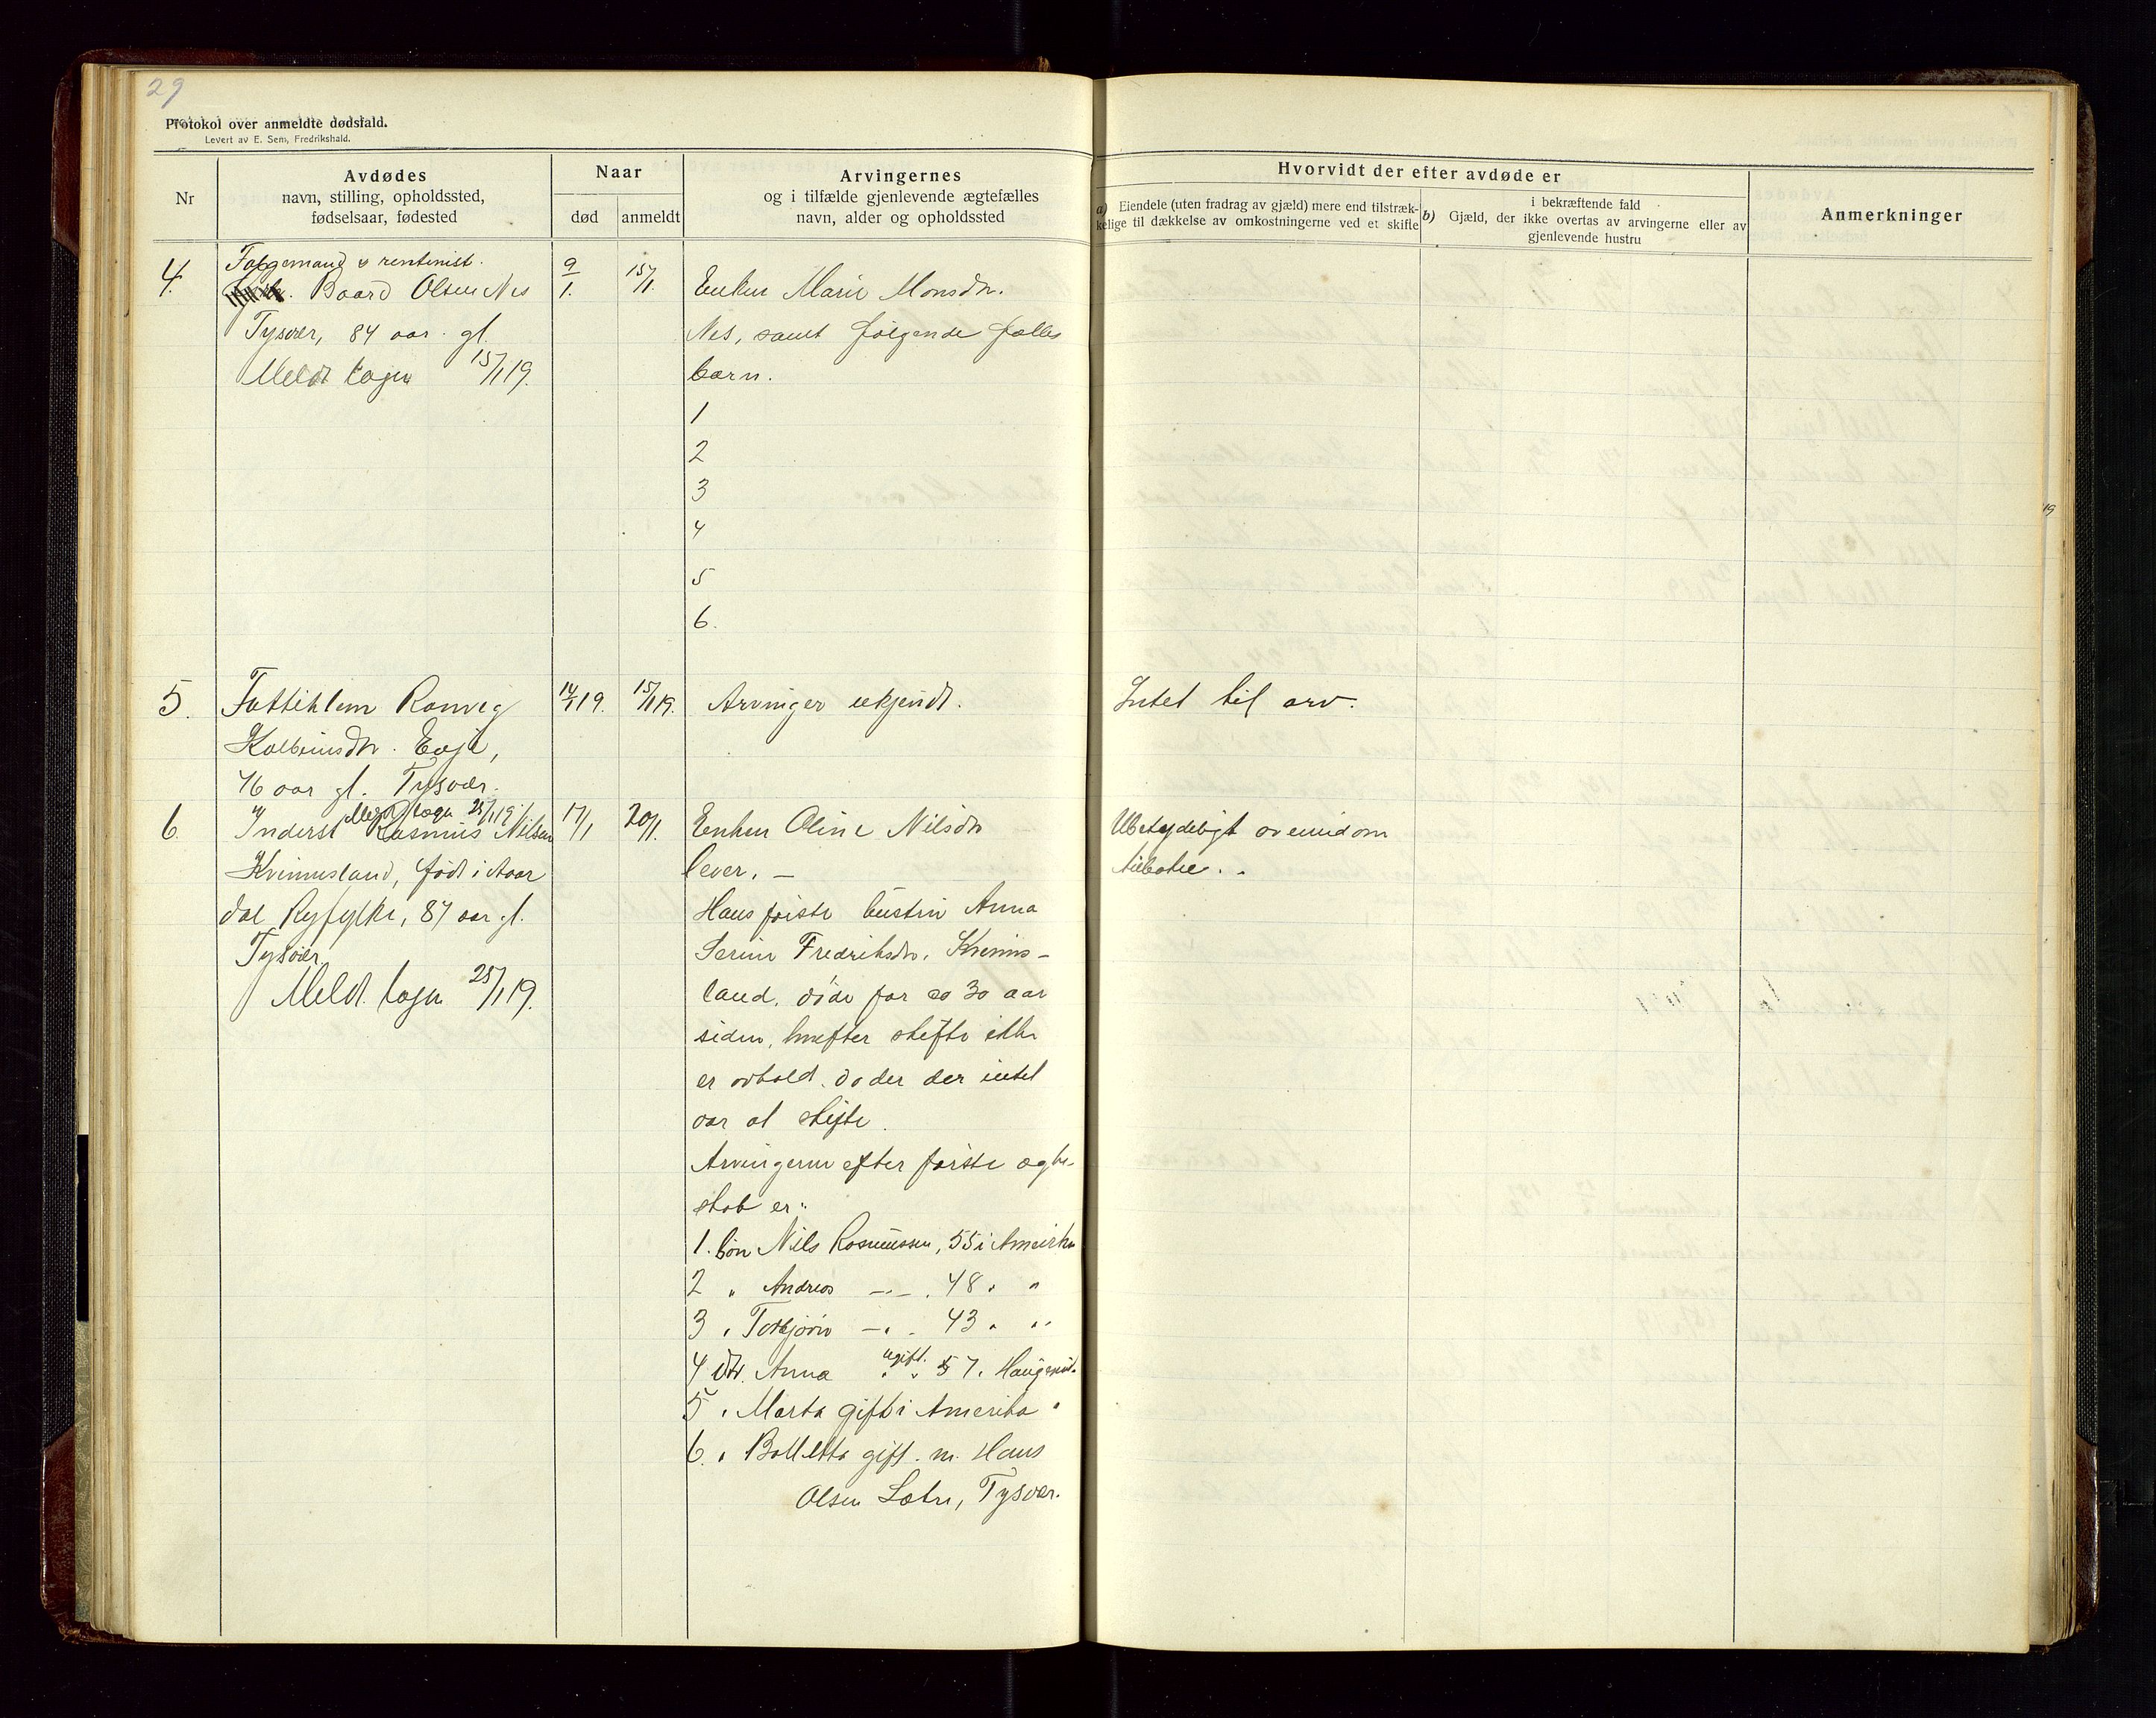 29
Protokol over anmeldte dødsfald.
Levert av E. Sem, Fredrikshald.
Nr
Avdødes
navn, stilling, opholdssted,
fødselsaar, fødested
Naar
død
anmeldt
Arvingernes
og i tilfælde gjenlevende ægtefælles
navn, alder og opholdssted
Hvorvidt der efter avdøde er
a) Eiendele (uten fradrag av gjæld) mere end tilstræk-
kelige til dækkelse av omkostningerne ved et skifte
b) i bekræftende fald
Gjæld, der ikke overtas av arvingerne eller av
gjenlevende hustru
Anmerkninger
4.
Folgemand & rentenist.
Baard Olsen Nes
Tysvær, 84 aar gl.
Meldt sogn 15/1 19.
9/1.
15/1.
Enken Marie Monsdtr.
Nes, samt følgende fælles
barn.
1
2
3
4
5
6.
5.
Fattiklem Ranveg
Kolbeinsdtr. Eeje,
76 aar gl. Tysvær.
Meldt sogn 25/1 19
14/1 19.
15/1 19.
Arvinger ukjendt.
Intet til arv.
6.
Inderst Rasmus Nilsen
Kvinnesland, født i Aar
dal Ryfylke, 87 aar gl.
Tysvær.
Meldt sogn 25/1 19.
17/1
20/1.
Enken Oline Nilsdtr
lever. —
Hans første hustru Anna
Serine Fredriksdtr. Kvinns-
land, døde for ca 30 aar
siden, hvorefter skifte ikke
er avhold. da der der intet
var at skifte.
Arvingerne efter første ægte-
skab er:
1. Søn Nils Rasmussen, 55 i Amerika
2 " Andreas —"— . 48 " "
3 " Torbjørn —" . 43 " "
4 Dtr. Anna ugift. 57. Haugesund.
5 " Marta gift i Amerika "
6. " Bolletta gift. m. Hans
Olsen Sætre, Tysvær.
Ubetydeligt av eiendom
tilbake. .
19